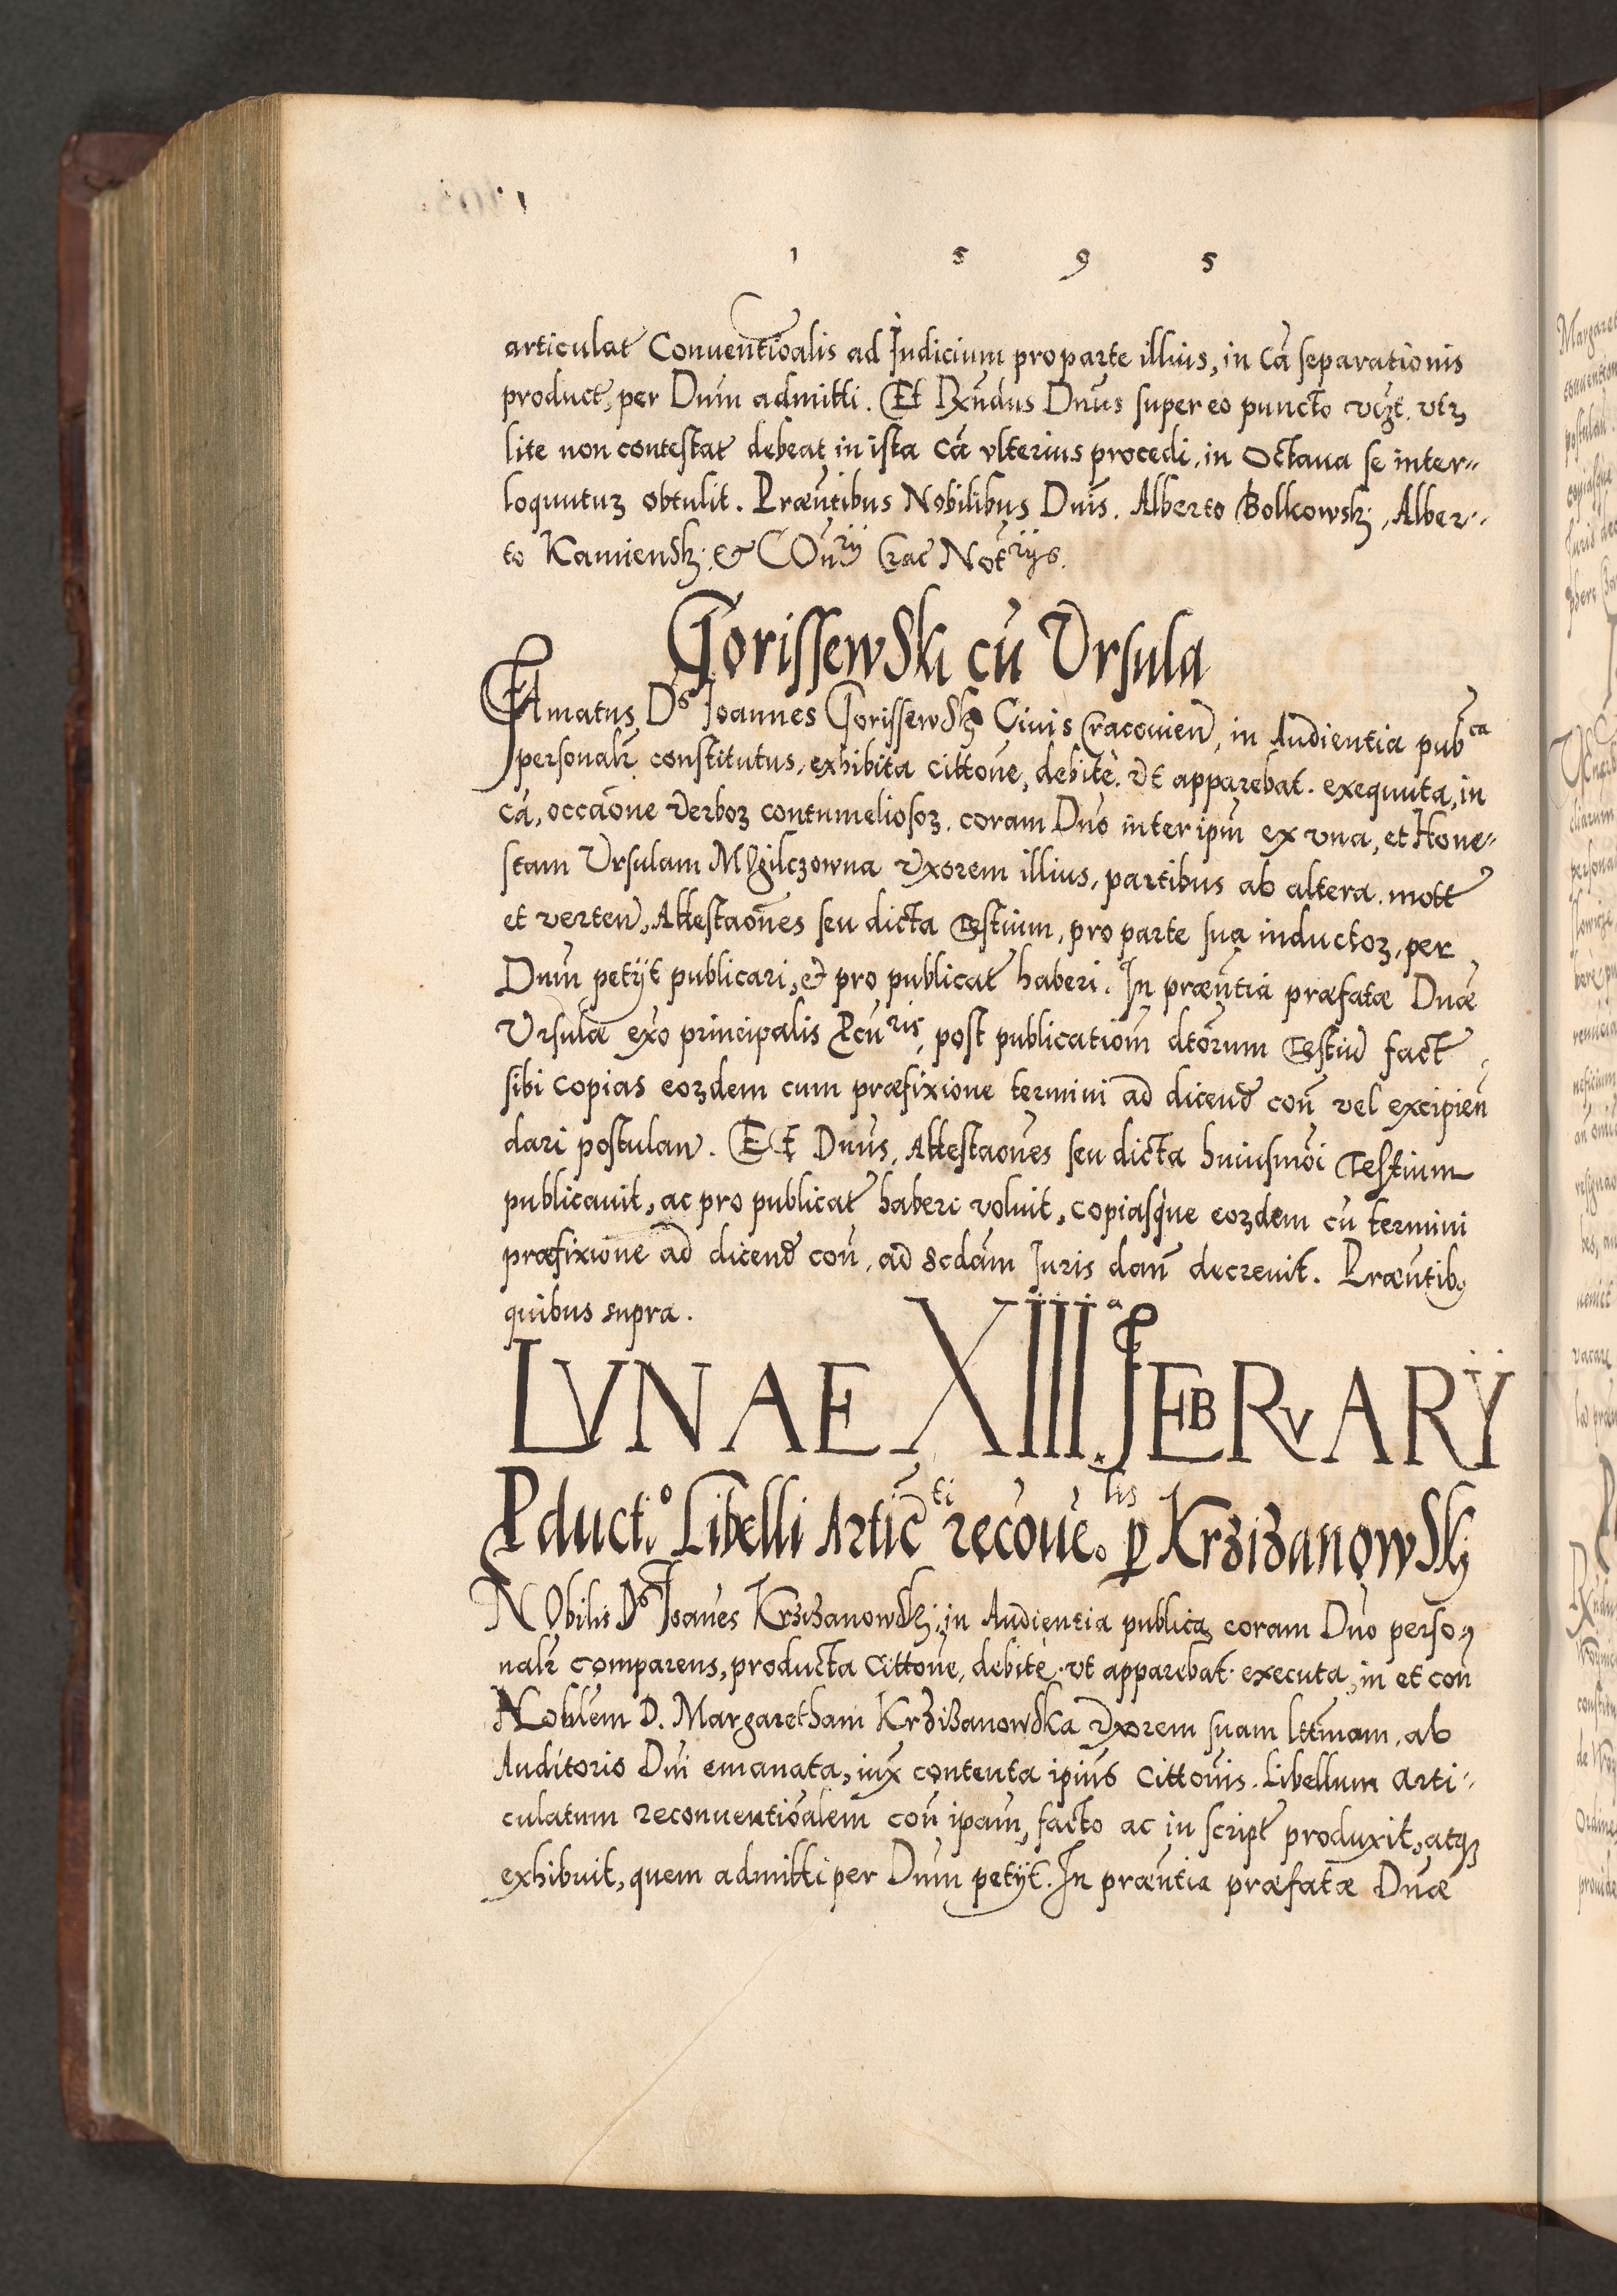 1 5 9 5
articulat Conuentioalis ad Iudicium pro parte illius, in Cã separationis
product, per Dnũm admitti. Et Rx̃ndus Dnũs super eo puncto vizt. vtrũ
lite non contestat debeat in ista Cã vlterius procedi, in Octaua se inter-
loquutuꝝ obtulit. Præñtibus Nobilibus Dnĩs. Alberto Bolkowskj, Alber-
to Kamienskj & COnrÿ Crac Notrijs.
Gorissewski cũ Vrsula
FAmatus Ds Ioannes Gorissewskj Ciuis Cracouieñ, in Audientia pubca
personalr constitutus, exhibita cittoñe, debitè. vt apparebat. exequuta, in
cã, occaõne verboꝝ contumeliosoꝝ. coram Dnõ inter ipm̃ ex vna, et Hone-
stam Vrsulam Mgilczowna vxorem illius, partibus ab altera. mott
et verteñ, Attestaoñes seu dicta Testium, pro parte sua inductoꝝ, per
Dnũm petijt publicari, et pro publicat haberi. In præñtia præfatæ Dnæ
Vrsulæ exõ principalis Pcuris, post publicatioñm dtõrum Testiũ fact
sibi copias eoꝝdem cum præfixione termini ad dicenđ coñ vel excipieñ
dari postulañ. Et Dnũs, Attestaoñes seu dicta huiusmõi Testium
publicauit, ac pro publicat haberi voluit, copiasque eoꝝdem cũ termini
præfixione ad dicenđ coñ, ad scdãm Iuris dañ decreuit. Præñtibꝰ
quibus supra.
LVNAE XIII.a FEBRVARŸ
Pducto. Libelli Articti recoũe.lis p Krziżanowskj
NObilis Ds Ioañes Krziżanowskj, in Audientia publica coram Dnõ perso-
nalr comparens, producta cittoñe, debitè. vt apparebat. executa, in et coñ
Noblẽm D. Margaretham Krziżanowska vxorem suam lttm̃am, ab
Auditorio Dnĩ emanata, iux contenta ipiũs cittoñis. Libellum arti-
culatum reconuentioãlem coñ ipam̃, facto ac in script produxit, atqꝫ
exhibuit, quem admitti per Dnũm petijt. In præñtia præfatæ Dnæ